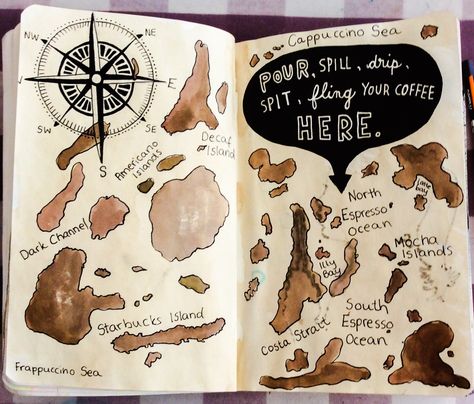 NW
NE
E
SW
SE
S
Americano
Islands
Decaf
Island
Dark Channel
Starbucks Island
Frappuccino Sea
Cappuccino Sea
POUR, SPILL, drip,
SPIT, fling YOUR COFFEE
HERE.
North
Espresso
Ocean
Illy
Bay
Mocha
Islands
Costa Strait
South
Espresso
Ocean